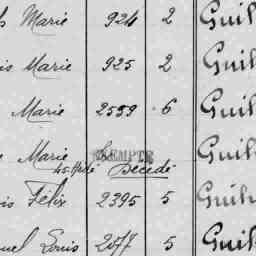 Marie 924 2 Guil
is Marie 925 2 Guil
Marie 2559 6 Guil
Marie Guil
Décédé
is Félix 2395 5 Guil
uel Louis 2077 5 Guil